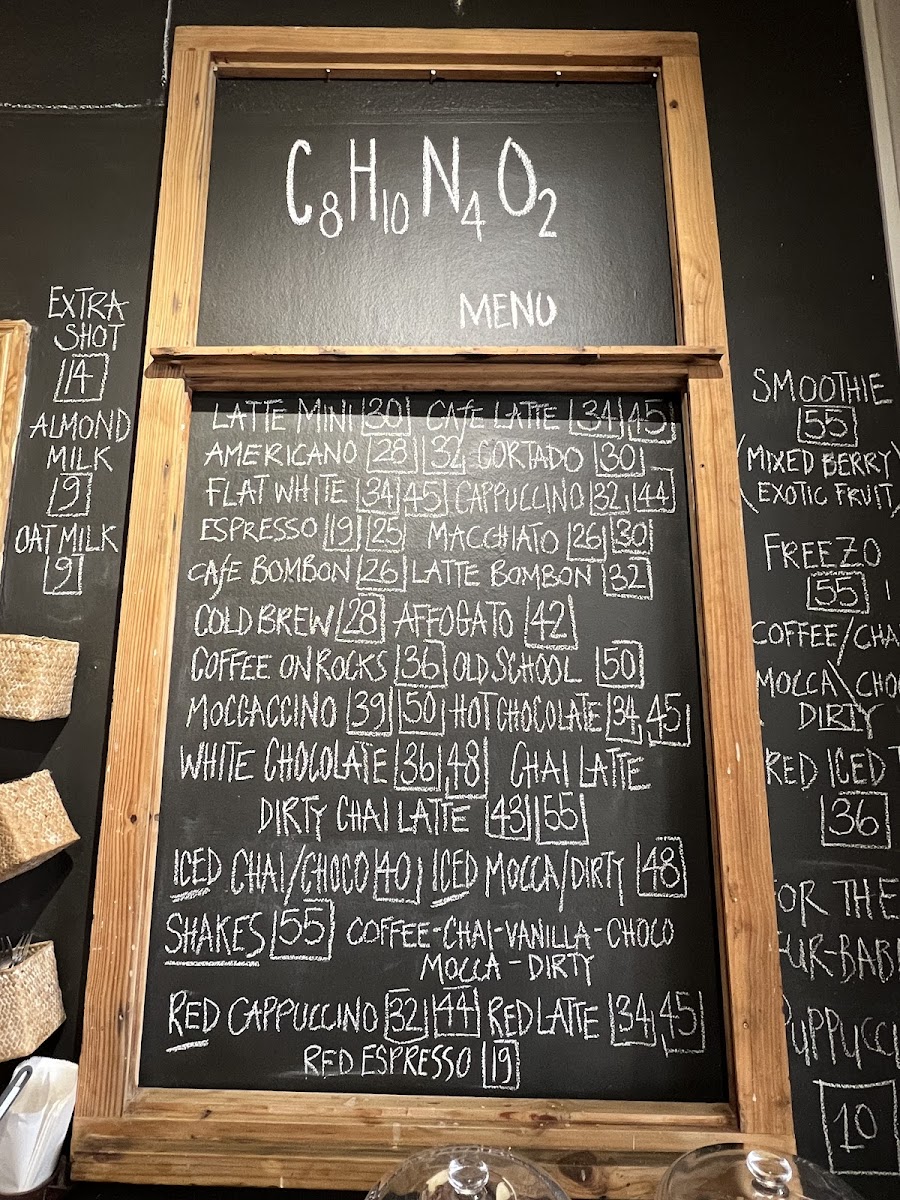 C8H10N4O2
MENU
EXTRA
SHOT
14
ALMOND
MILK
9
OAT MILK
9
LATTE MINI 30 CAFE LATTE 34 45
AMERICANO 28 32 CORTADO 30
FLAT WHITE 34 45 CAPPUCCINO 32 44
ESPRESSO 19 25 MACCHIATO 26 30
CAFE BOMBON 26 LATTE BOMBON 32
COLD BREW 28 AFFOGATO 42
COFFEE ON ROCKS 36 OLD SCHOOL 50
MOCCACCINO 39 50 HOT CHOCOLATE 34 45
WHITE CHOCOLATE 36 48 CHAI LATTE
DIRTY CHAI LATTE 43 55
ICED CHAI/CHOCO 40 ICED MOCCA/DIRTY 48
SHAKES 55 COFFEE-CHAI-VANILLA-CHOCO
MOCCA-DIRTY
RED CAPPUCCINO 32 44 RED LATTE 34 45
RED ESPRESSO 19
SMOOTHIE
55
(MIXED BERRY)
(EXOTIC FRUIT)
FREEZO
55
COFFEE/CHA
MOCCA\CHO
DIRTY
RED ICED T
36
OR THE
UR-BAB
PUPPUCC
10